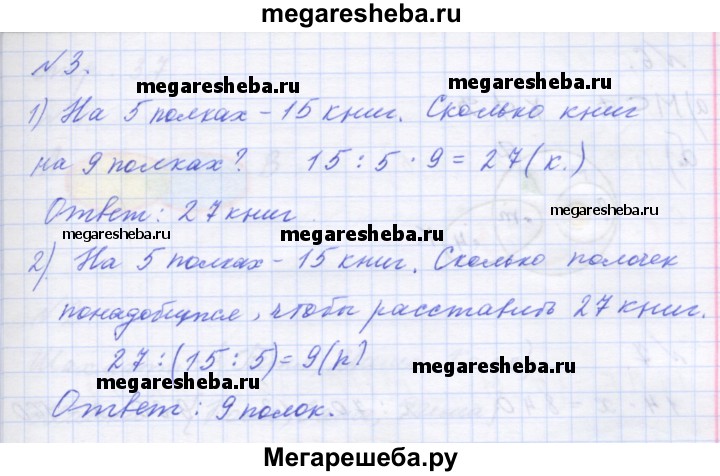 megaresheba.ru
№3.
megaresheba.ru megaresheba.ru
1) На 5 полках - 15 книг. Сколько книг
на 9 полках? 15 : 5 · 9 = 27 (к.)
Ответ: 27 книг.
megaresheba.ru megaresheba.ru megaresheba.ru
2) На 5 полках - 15 книг. Сколько полочек
понадобится, чтобы расставить 27 книг.
27 : (15 : 5) = 9 (п)
megaresheba.ru megaresheba.ru
Ответ: 9 полок.
Мегарешеба.ру